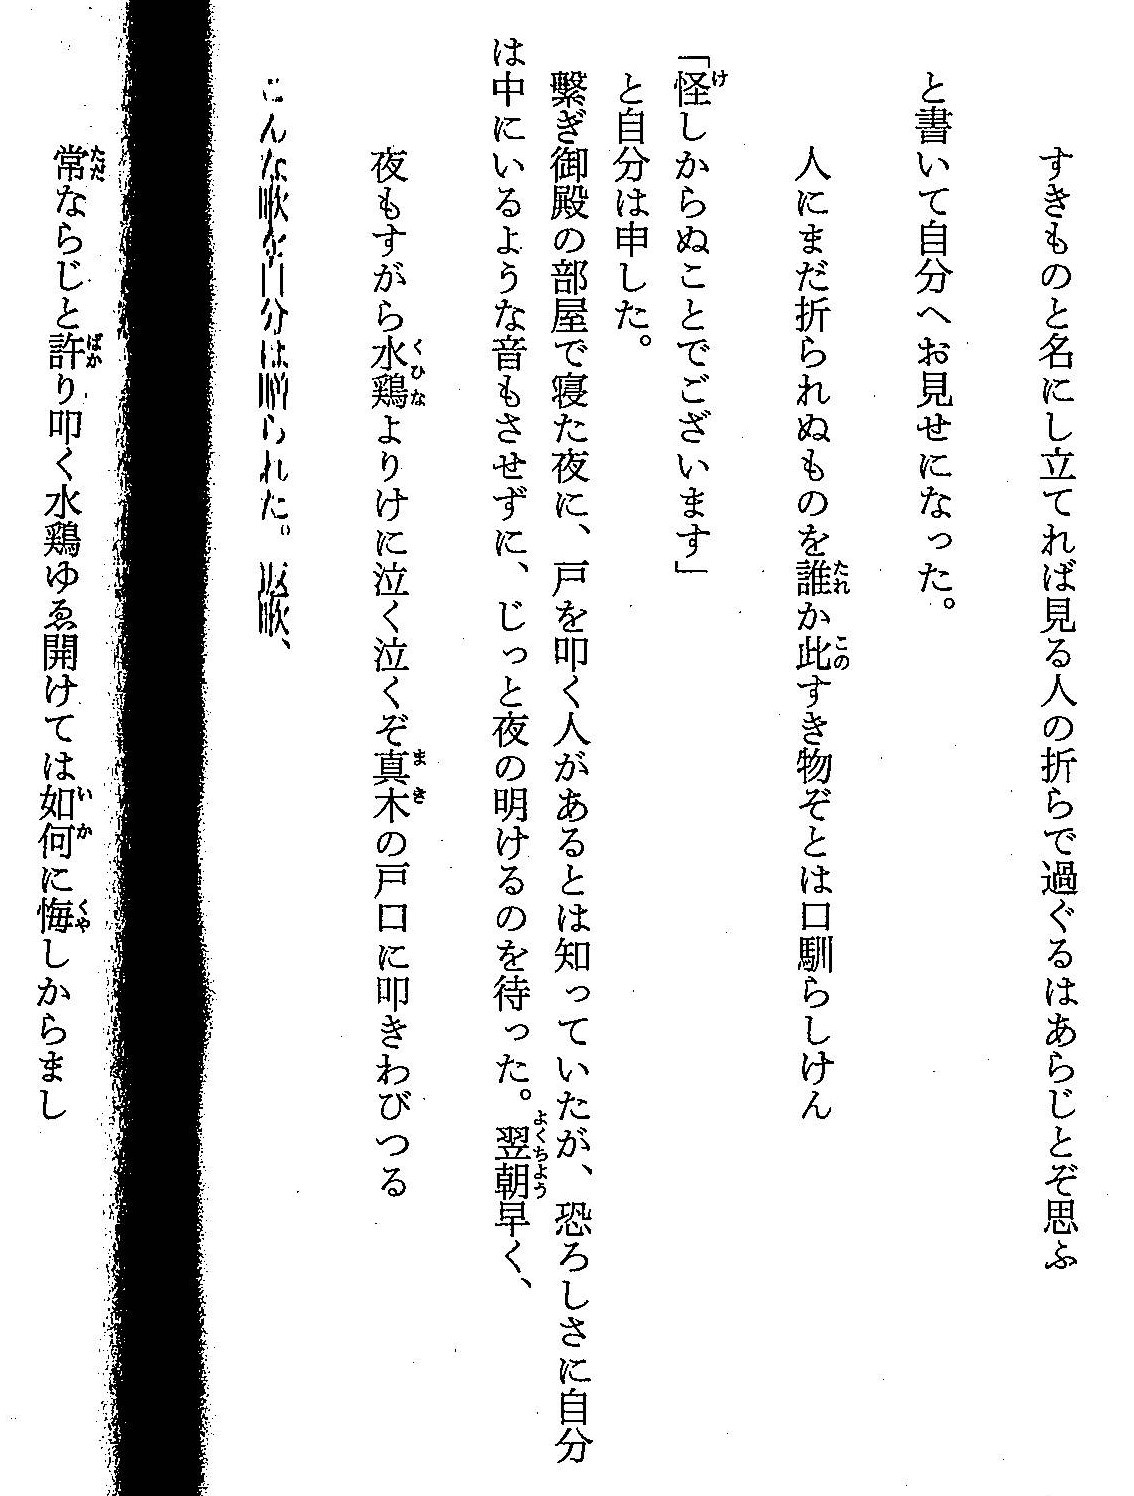 すきものと名にし立てれば見る人の折らで過ぐるはあらじとぞ思ふ
と書いて自分へお見せになった。
人にまだ折られぬものを誰か此すき物ぞとは口馴らしけん
「怪しからぬことでございます」
と自分は申した。
繋ぎ御殿の部屋で寝た夜に、戸を叩く人があるとは知っていたが、恐ろしさに自分
は中にいるような音もさせずに、じっと夜の明けるのを待った。翌朝早く、
夜もすがら水鶏よりけに泣く泣くぞ真木の戸口に叩きわびつる
こんな歌を自分は贈られた。返歌、
常ならじと許り叩く水鶏ゆゑ開けては如何に悔しからまし